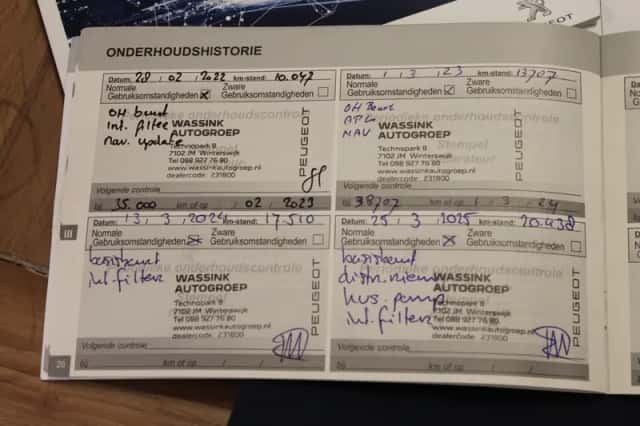 PEUGEOT
ONDERHOUDSHISTORIE
Datum: 28 / 02 / 2022 km-stand: 10.047
Normale
Gebruiksomstandigheden
Zware
Gebruiksomstandigheden
OH beurt
int. filter
nav. update
WASSINK
AUTOGROEP
Technopark 8
7102 JM Winterswijk
Tel 088 927 76 80
www.wassinkautogroep.nl
dealercode: 231800
PEUGEOT
Volgende controle
bij 35.000 km of op / 02 / 2023
Datum: 1 / 3 / 23 km-stand: 13707
Normale
Gebruiksomstandigheden
Zware
Gebruiksomstandigheden
OH Beurt
NAV
WASSINK
AUTOGROEP
Technopark 8
7102 JM Winterswijk
Tel 088 927 76 80
www.wassinkautogroep.nl
dealercode: 231800
PEUGEOT
Volgende controle
bij 38707 km of op 1 / 3 / 24
III
Datum: 13 / 3 / 2024 km-stand: 17.510
Normale
Gebruiksomstandigheden
Zware
Gebruiksomstandigheden
Periodieke onderhoudscontrole
basisbeurt
int. filters
WASSINK
AUTOGROEP
Technopark 8
7102 JM Winterswijk
Tel 088 927 76 80
www.wassinkautogroep.nl
dealercode: 231800
PEUGEOT
Volgende controle
bij km of op / /
Datum: 25 / 3 / 2025 km-stand: 20.438
Normale
Gebruiksomstandigheden
Zware
Gebruiksomstandigheden
Periodieke onderhoudscontrole
basisbeurt
distr. riem
pomp
int. filters
WASSINK
AUTOGROEP
Technopark 8
7102 JM Winterswijk
Tel 088 927 76 80
www.wassinkautogroep.nl
dealercode: 231800
PEUGEOT
Volgende controle
bij km of op / /
26